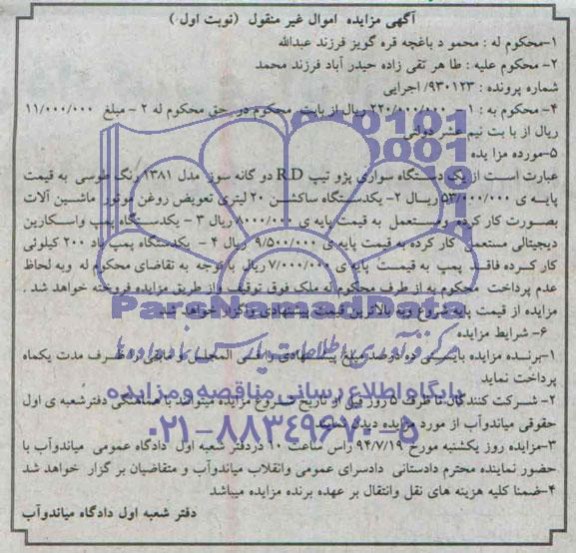 آگهی مزایده اموال غیر منقول (نوبت اول)
۱-محکوم له : محمو د باغچه قره گویز فرزند عبدالله
۲- محکوم علیه : طا هر تقی زاده حیدر آباد فرزند محمد
شماره پرونده : ۹۳۰۱۲۳/ اجرایی
۴- محکوم به : ۱- ۲۲۰/۰۰۰/۰۰۰ ریال از بابت محکوم در حق محکوم له ۲ - مبلغ ۱۱/۰۰۰/۰۰۰
ریال از با بت نیم عشر دولتی
۵-مورده مزا یده
عبارت است از یک دستگاه سواری پژو تیپ RD دو گانه سوز مدل ۱۳۸۱ رنگ طوسی به قیمت
پایه ی ۵۳/۰۰۰/۰۰۰ ریال ۲- یکدستگاه ساکشن ۲۰ لیتری تعویض روغن موتور ماشین آلات
بصورت کار کرده ومستعمل به قیمت پایه ی ۸۰۰۰/۰۰۰ ریال ۳ - یکدستگاه پمپ واسکازین
دیجیتالی مستعمل کار کرده به قیمت پایه ی ۹/۵۰۰/۰۰۰ ریال ۴ - یکدستگاه پمپ باد ۲۰۰ کیلوئی
کار کرده فاقد پمپ به قیمت پایه ی ۷/۰۰۰/۰۰۰ ریال با توجه به تقاضای محکوم له وبه لحاظ
عدم پرداخت محکوم به از طرف محکوم له ملک فوق توقیف از طریق مزایده فروخته خواهد شد .
مزایده از قیمت پایه شروع وبه بالاترین قیمت پیشنهادی واگزار خواهد شد
ParsNamadData
۶- شرایط مزایده
مرکز فرآوری اطلاعات پارس نماد داده ها
۱-برنده مزایده بایستی ده درصد مبلغ پیشنهادی را فی المجلس و مابقی را ظرف مدت یکماه
پرداخت نماید
پایگاه اطلاع رسانی مناقصه و مزایده
۲- شرکت کنندگان تا ظرف ۵ روز قبل از تاریخ شروع مزایده میتوانند با هماهنگی دفترشعبه ی اول
حقوقی میاندوآب از مورد مزایده دیدن نمایند
۰۲۱-۸۸۳۴۹۶۷۰-۵
۳-مزایده روز یکشنبه مورخ ۹۴/۷/۱۹ راس ساعت ۱۰ دردفتر شعبه اول دادگاه عمومی میاندوآب با
حضور نماینده محترم دادستانی دادسرای عمومی وانقلاب میاندوآب و متقاضیان بر گزار خواهد شد
۴-ضمنا کلیه هزینه های نقل وانتقال بر عهده برنده مزایده میباشد
دفتر شعبه اول دادگاه میاندوآب